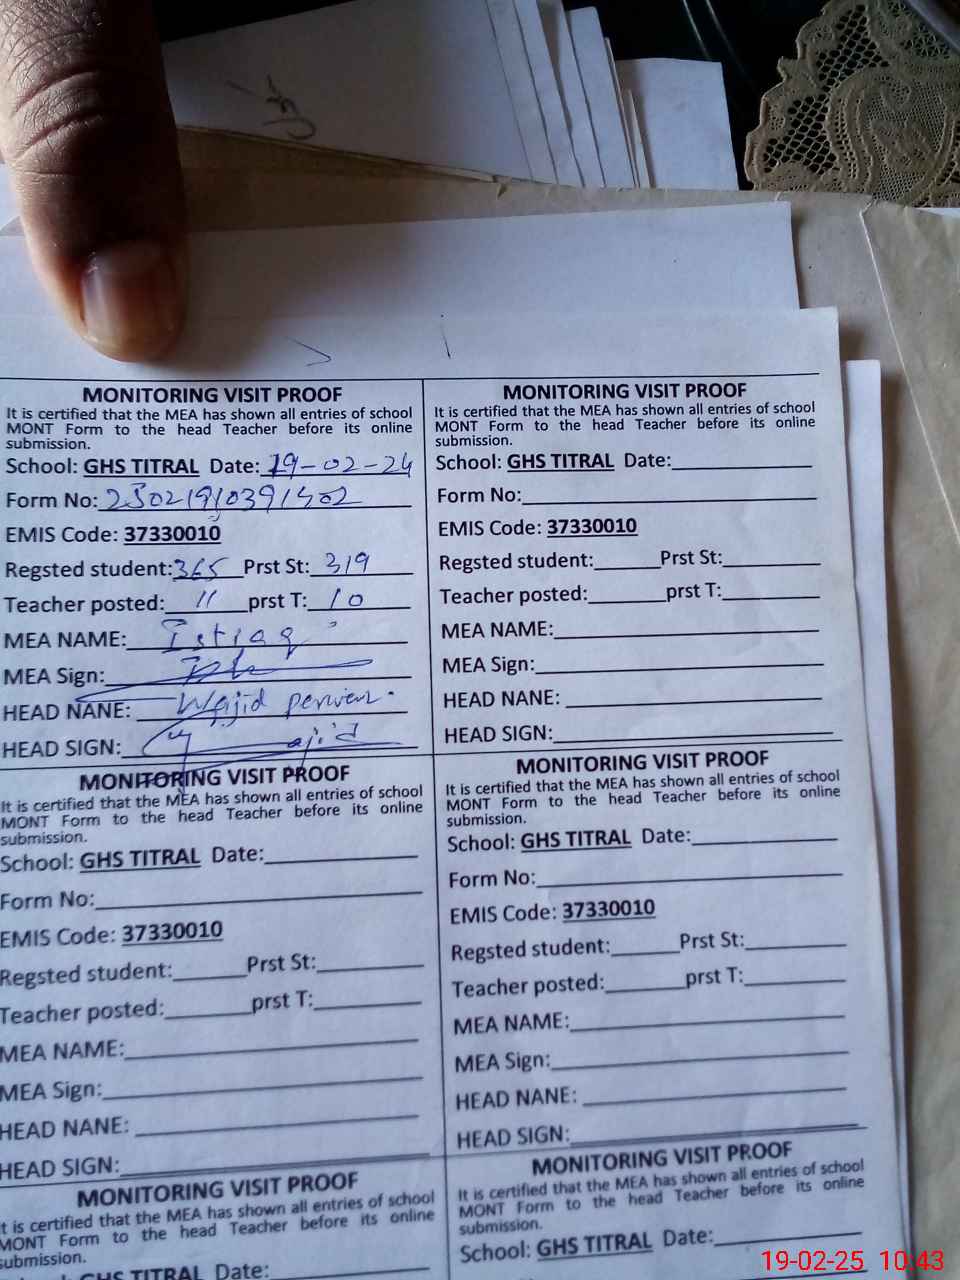 MONITORING VISIT PROOF
It is certified that the MEA has shown all entries of school
MONT Form to the head Teacher before its online
submission.
School: GHS TITRAL Date: 19-02-24
Form No:
EMIS Code: 37330010
Regsted student: 365 Prst St: 319
Teacher posted: 11 prst T: 10
MEA NAME: Istiaq
MEA Sign:
HEAD NANE: Wajid perven
HEAD SIGN:
MONITORING VISIT PROOF
It is certified that the MEA has shown all entries of school
MONT Form to the head Teacher before its online
submission.
School: GHS TITRAL Date:
Form No:
EMIS Code: 37330010
Regsted student: Prst St:
Teacher posted: prst T:
MEA NAME:
MEA Sign:
HEAD NANE:
HEAD SIGN:
MONITORING VISIT PROOF
It is certified that the MEA has shown all entries of school
MONT Form to the head Teacher before its online
submission.
School: GHS TITRAL Date:
Form No:
EMIS Code: 37330010
Regsted student: Prst St:
Teacher posted: prst T:
MEA NAME:
MEA Sign:
HEAD NANE:
HEAD SIGN:
MONITORING VISIT PROOF
It is certified that the MEA has shown all entries of school
MONT Form to the head Teacher before its online
submission.
School: GHS TITRAL Date:
Form No:
EMIS Code: 37330010
Regsted student: Prst St:
Teacher posted: prst T:
MEA NAME:
MEA Sign:
HEAD NANE:
HEAD SIGN:
MONITORING VISIT PROOF
It is certified that the MEA has shown all entries of school
MONT Form to the head Teacher before its online
submission.
School: GHS TITRAL Date:
MONITORING VISIT PROOF
It is certified that the MEA has shown all entries of school
MONT Form to the head Teacher before its online
submission.
School: GHS TITRAL Date:
19-02-25 10:43